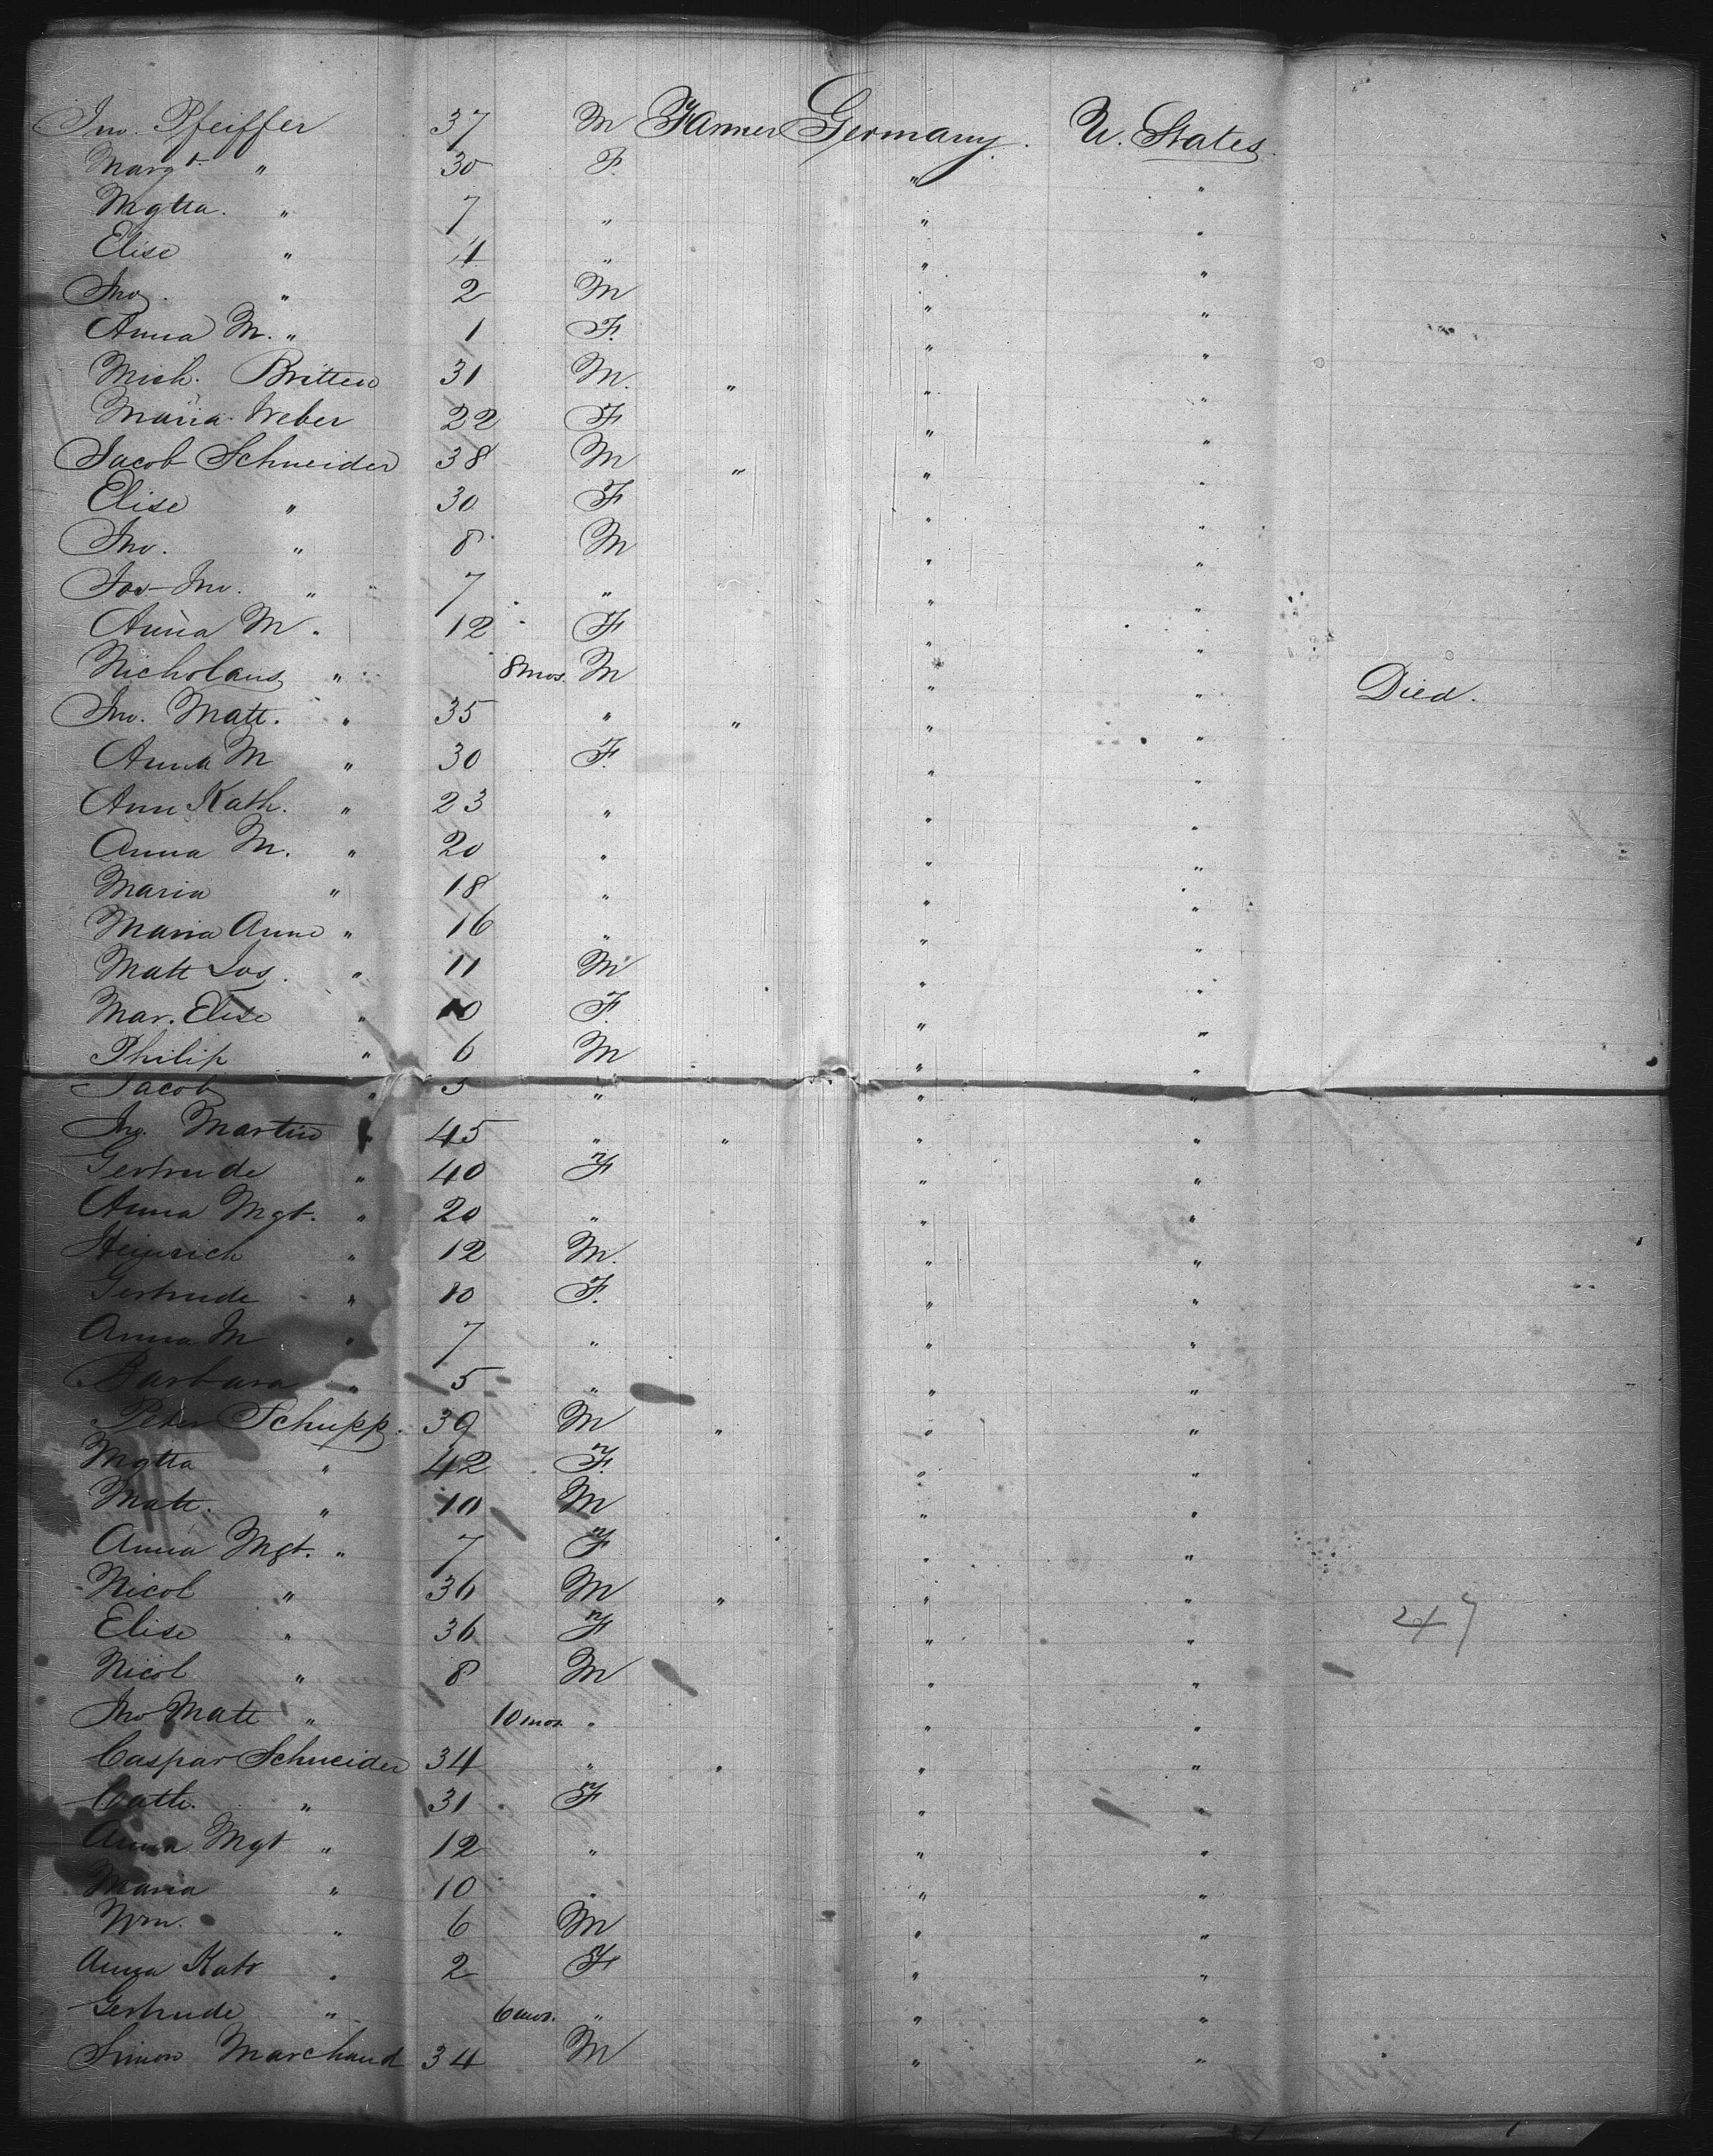 Jno. Pfeiffer 37 M Farmer Germany. U. States.
Margt. " 30 F. " "
Mgtta. " 7 " " "
Elise " 4 " " "
Jno. " 2 M " "
Anna M. " 1 F. " "
Mich. Britten 31 M. " " "
Maria Weber 22 F " "
Jacob Schneider 38 M " " "
Elise " 30 F " "
Jno. " 8 M " "
Jos-Jno. " 7 " " "
Anna M. " 12 F " "
Nicholaus " 8 mos. M " " Died.
Jno. Matt. " 35 " " " "
Anna M " 30 F. " "
Ann Kath. " 23 " " "
Anna M. " 20 " " "
Maria " 18 " " "
Maria Anne " 16 " " "
Matt Jos. " 11 M " "
Mar. Elise " 10 F. " "
Philip " 6 M " "
Jacob " 3 " " "
Jno. Martin " 45 " " " "
Gertrude " 40 F " "
Anna Mgt. " 20 " " "
Heinrich " 12 M. " "
Gertrude " 10 F. " "
Anna M " 7 " " "
Barbara " 5 " " "
Peter Schupp. 39 M " " "
Mgtta " 42 F. " "
Matt. " 10 M " "
Anna Mgt. " 7 F " "
Nicol " 36 M " " "
Elise " 36 F " " 247
Nicol " 8 M " "
Jno Matt " 10 mos. " " "
Caspar Schneider 34 " " " "
Cath. " 31 F " "
Anna Mgt " 12 " " "
Maria " 10 " " "
Wm. " 6 M " "
Anna Kath " 2 F " "
Gertrude " 6 mos. " " "
Simon Marchand 34 M " "